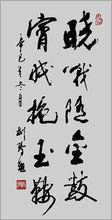 晓戰随金鼓
宵眠抱玉鞍
辛巳年冬月